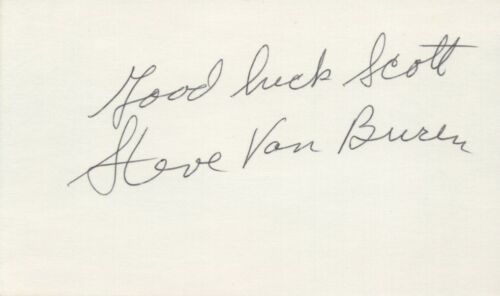 Good luck Scott
Steve Van Buren